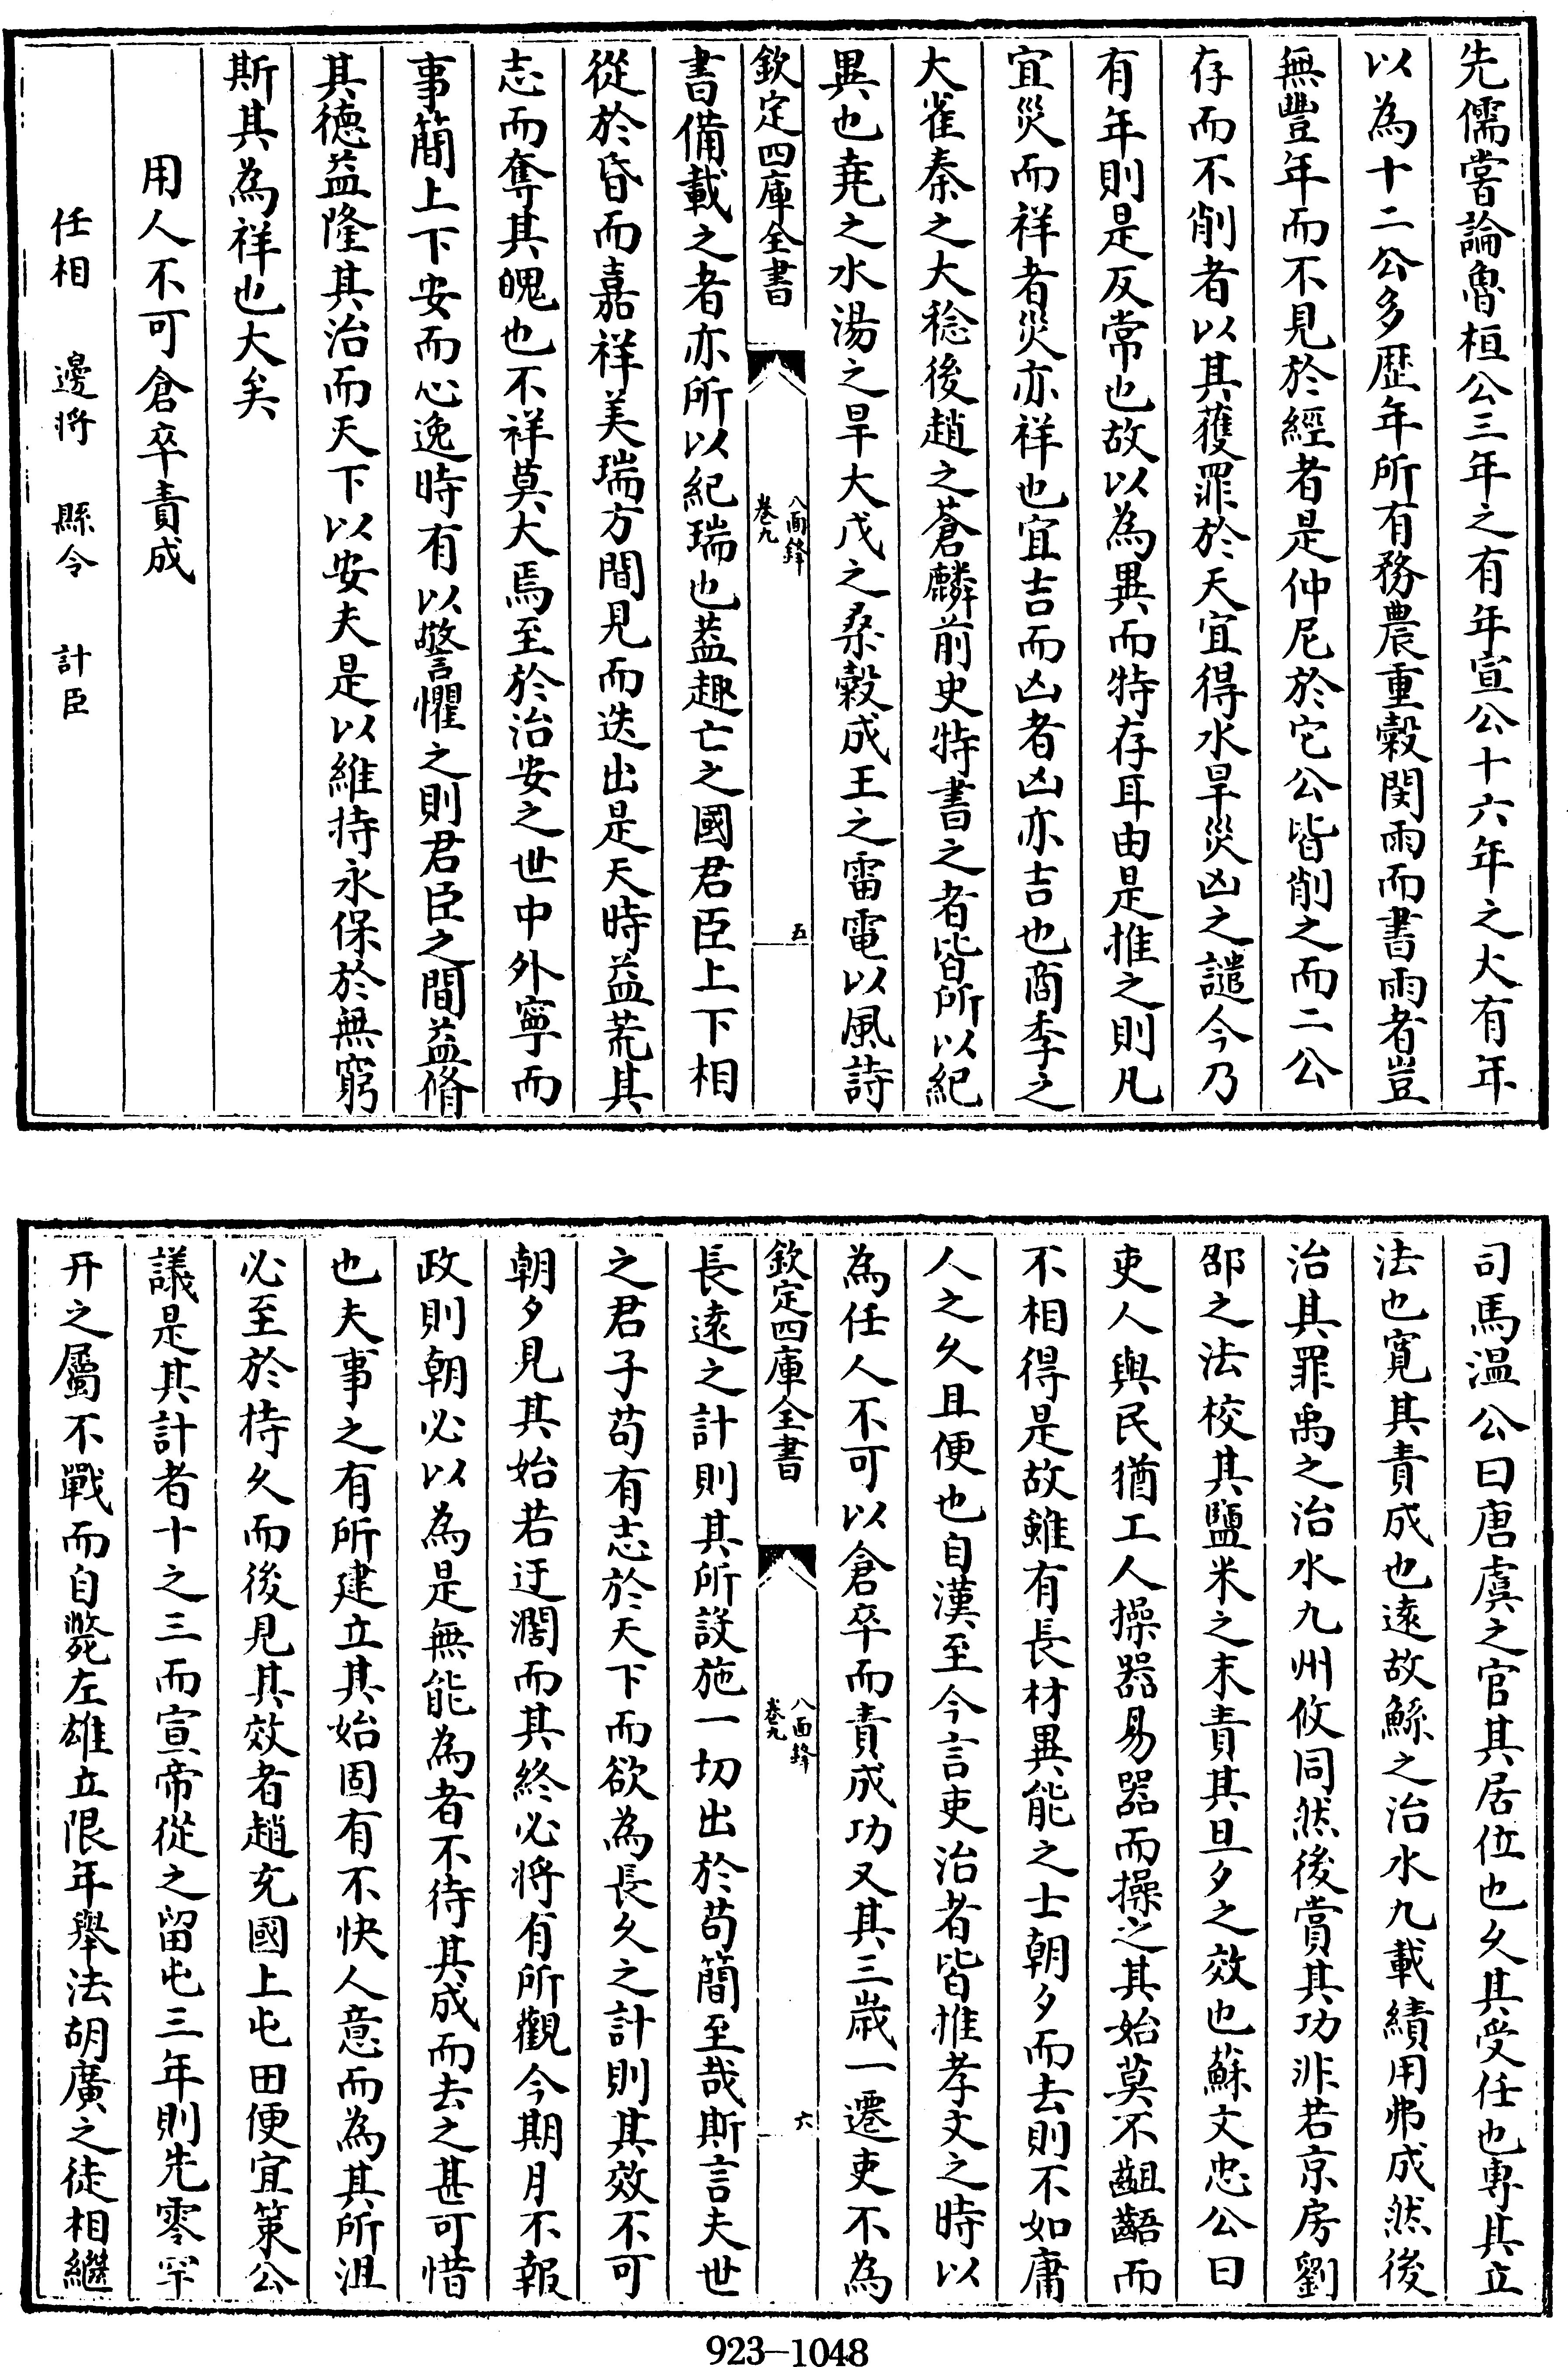 先儒嘗論魯桓公三年之有年宣公十六年之大有年
以為十二公多歴年所有務農重榖閔雨而書雨者豈
無豐年而不見於經者是仲尼於它公皆削之而二公
存而不削者以其獲罪於天宜得水旱災凶之譴今乃
有年則是反常也故以為異而特存耳由是推之則凡
宜災而祥者災亦祥也宜吉而凶者凶亦吉也商季之
大雀秦之大稔後趙之蒼麟前史特書之者皆所以紀
異也堯之水湯之旱大戊之桑榖成王之雷電以風詩
欽定四庫全書
八面鋒
卷九
五
書備載之者亦所以紀瑞也葢趣亡之國君臣上下相
從於昏而嘉祥美瑞方間見而迭出是天時益荒其
志而奪其魄也不祥莫大焉至於治安之世中外寧而
事簡上下安而心逸時有以警懼之則君臣之間益脩
其德益隆其治而天下以安夫是以維持永保於無窮
斯其為祥也大矣
用人不可倉卒責成
任相　邊将　縣令　計臣
司馬温公曰唐虞之官其居位也久其受任也專其立
法也寛其責成也遠故鯀之治水九載績用弗成然後
治其罪禹之治水九州攸同然後賞其功非若京房劉
邵之法校其鹽米之末責其旦夕之效也蘇文忠公曰
吏人與民猶工人操器易器而操之其始莫不齟齬而
不相得是故雖有長材異能之士朝夕而去則不如庸
人之久且便也自漢至今言吏治者皆推孝文之時以
為任人不可以倉卒而責成功又其三歳一遷吏不為
欽定四庫全書
八面鋒
卷九
六
長遠之計則其所設施一切出於苟簡至哉斯言夫世
之君子苟有志於天下而欲為長久之計則其效不可
朝夕見其始若迂濶而其終必將有所觀今期月不報
政則朝必以為是無能為者不待其成而去之甚可惜
也夫事之有所建立其始固有不快人意而為其所沮
必至於持久而後見其效者趙充國上屯田便宜策公
議是其計者十之三而宣帝從之留屯三年則先零罕
幵之屬不戰而自斃左雄立限年舉法胡廣之徒相繼
923-1048